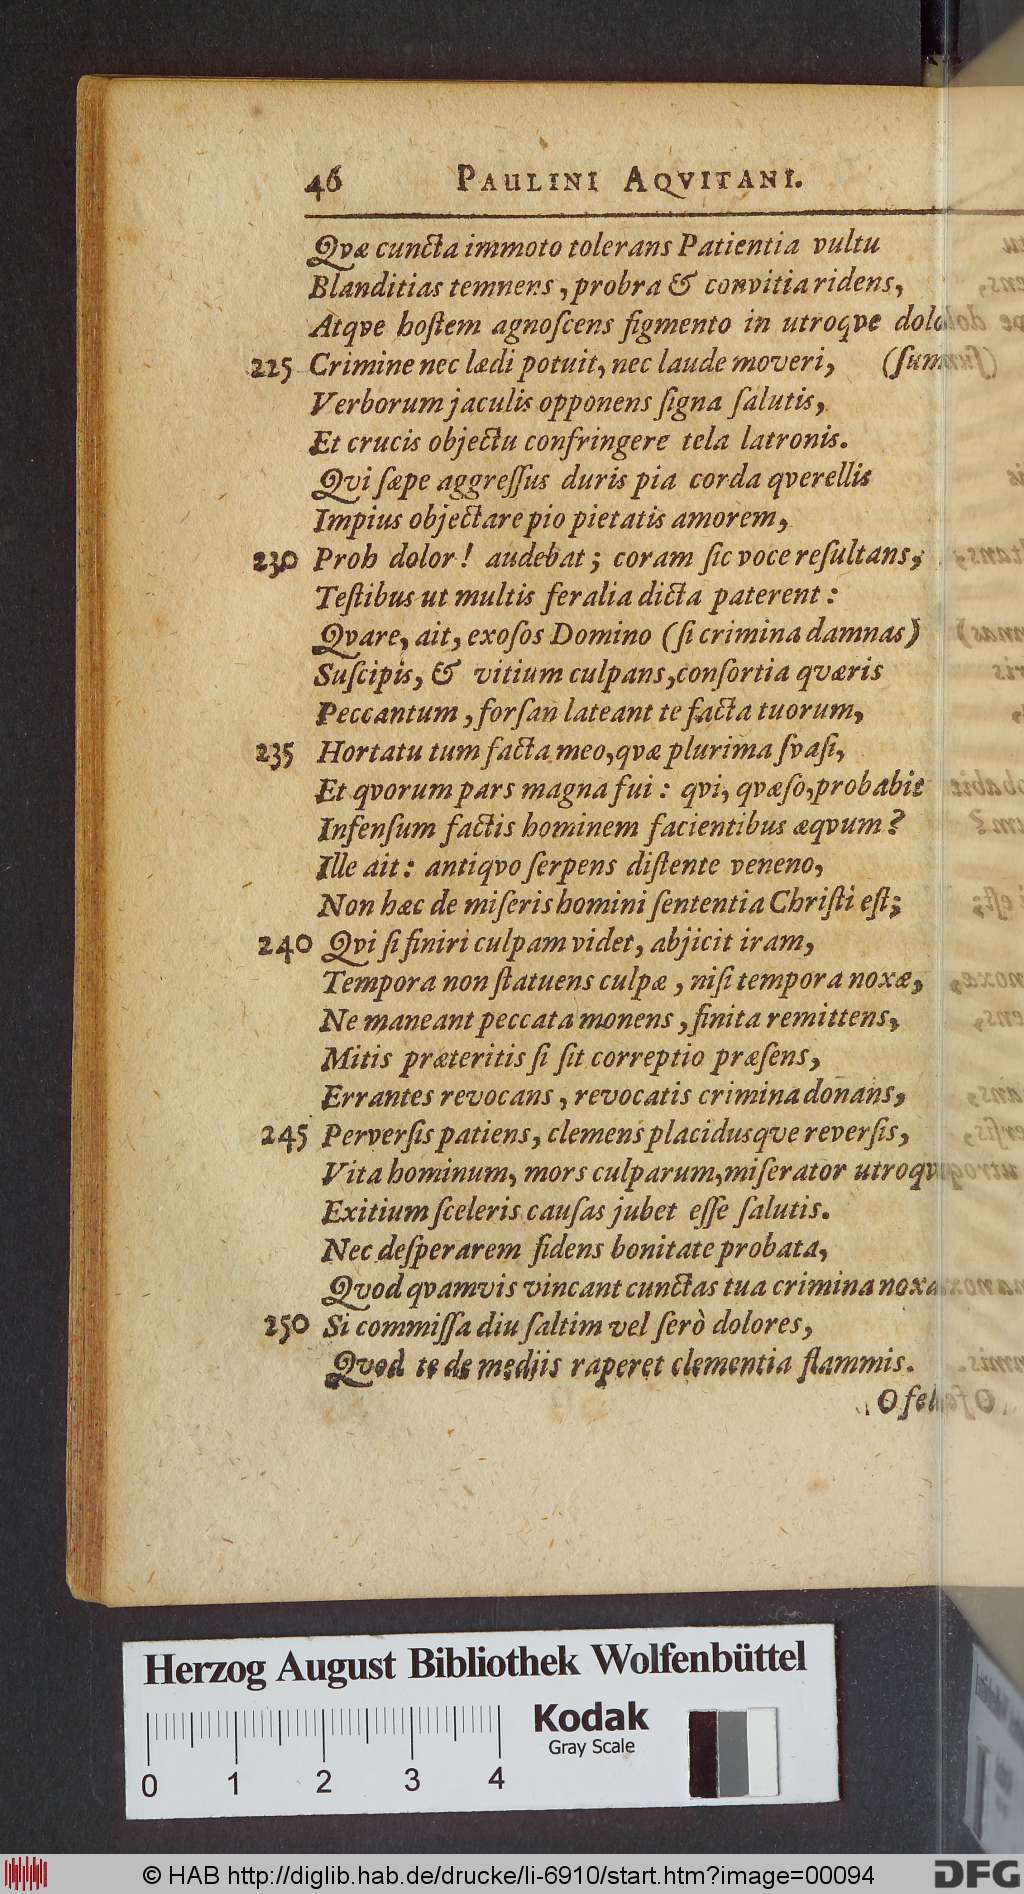 46 PAULINI AQVITANI.
Qvæ cuncta immoto tolerans Patientia vultu
Blanditias temnens, probra & convitia ridens,
Atqve hoſtem agnoſcens figmento in utroqve dolo
225 Crimine nec lædi potuit, nec laude moveri, (ſum
Verborum jaculis opponens ſigna ſalutis,
Et crucis objectu confringere tela latronis.
Qvi ſæpe aggreſſus duris pia corda qverellis
Impius objectare pio pietatis amorem,
230 Proh dolor! audebat; coram ſic voce reſultans,
Teſtibus ut multis feralia dicta paterent:
Qvare, ait, exoſos Domino (ſi crimina damnas)
Suſcipis, & vitium culpans, conſortia qværis
Peccantum, forſan lateant te facta tuorum,
235 Hortatu tum facta meo, qvæ plurima ſvaſi,
Et qvorum pars magna fui: qvi, qvæſo, probabit
Infenſum factis hominem facientibus æqvum?
Ille ait: antiqvo ſerpens diſtente veneno,
Non hæc de miſeris homini ſententia Chriſti eſt;
240 Qvi ſi finiri culpam videt, abjicit iram,
Tempora non ſtatuens culpæ, niſi tempora noxæ,
Ne maneant peccata monens, finita remittens,
Mitis præteritis ſi ſit correptio præſens,
Errantes revocans, revocatis crimina donans,
245 Perverſis patiens, clemens placidusque reverſis,
Vita hominum, mors culparum, miſerator utroqv
Exitium ſceleris cauſas jubet eſſe ſalutis.
Nec deſperarem fidens bonitate probata,
Qvod qvamvis vincant cunctas tua crimina noxa
250 Si commiſſa diu ſaltim vel ſerò dolores,
Qvod te de mediis raperet clementia flammis.
O fel
Herzog August Bibliothek Wolfenbüttel
Kodak
Gray Scale
0 1 2 3 4
© HAB http://diglib.hab.de/drucke/li-6910/start.htm?image=00094
DFG